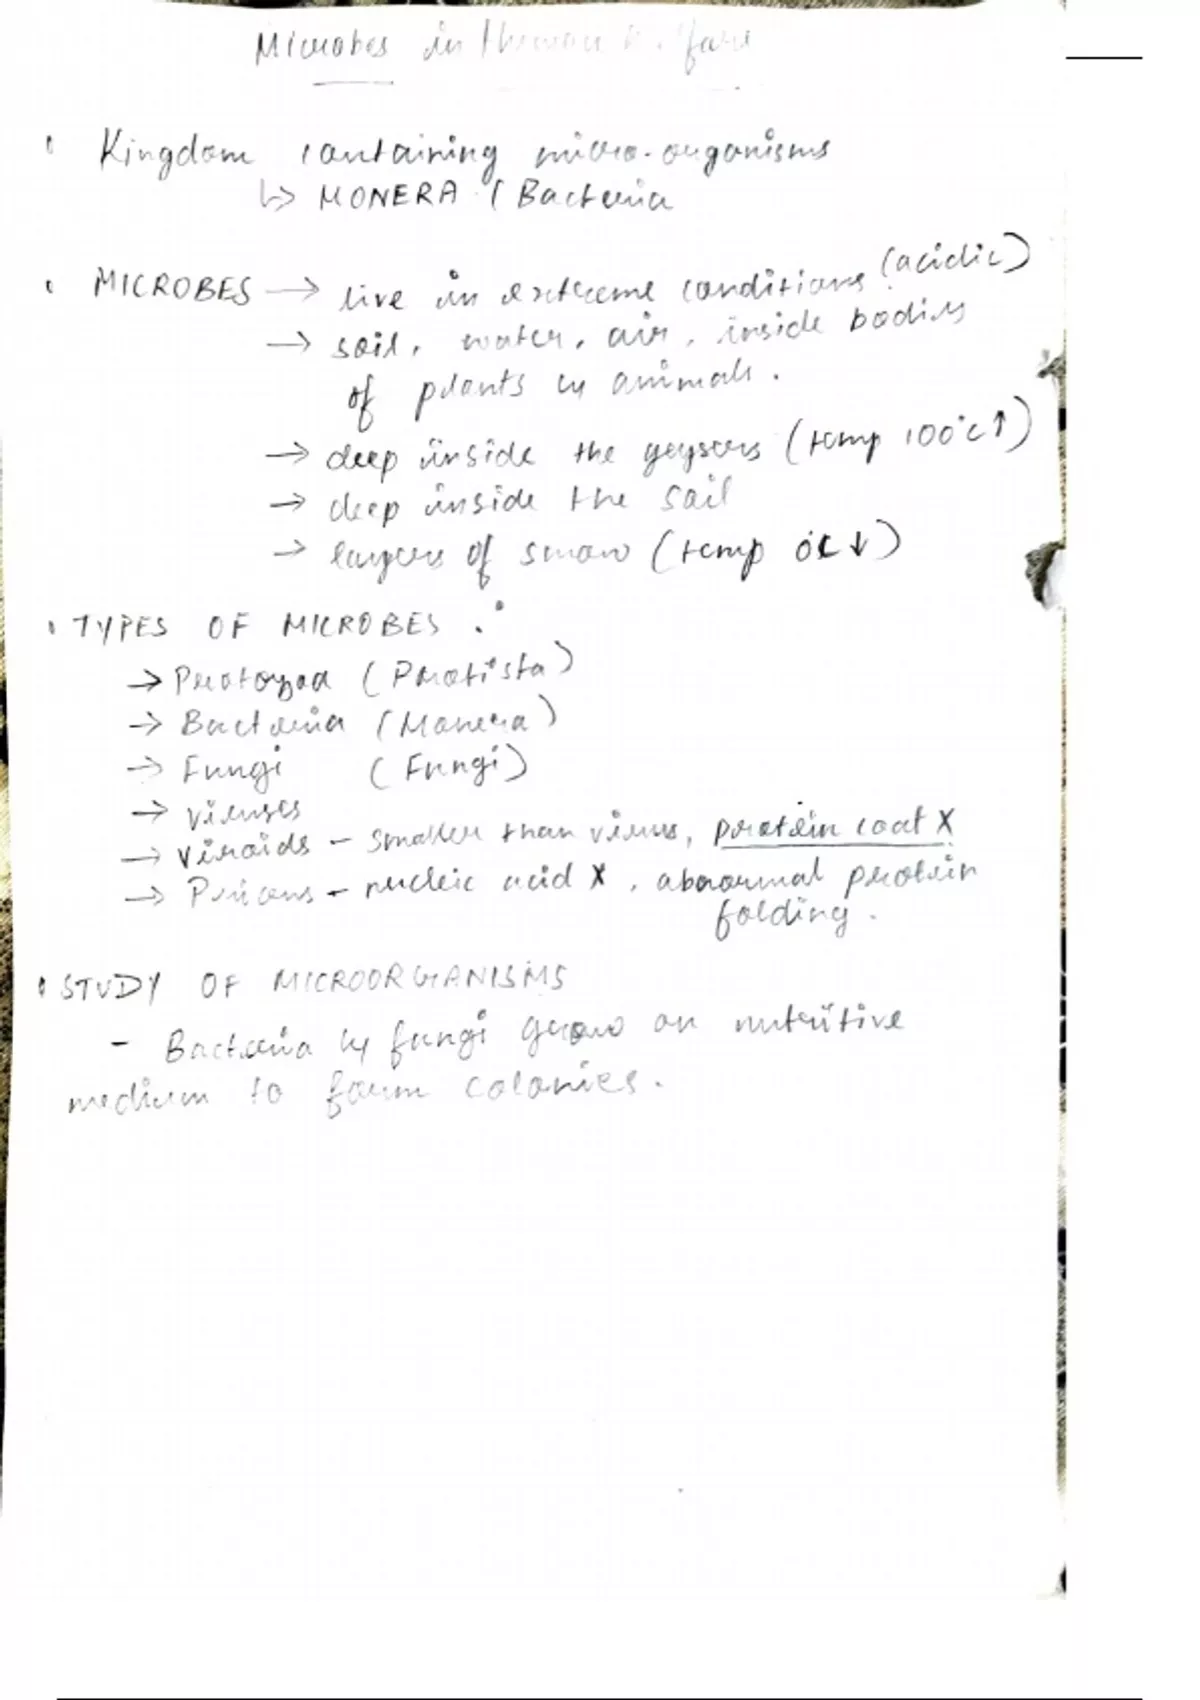 Microbes in Human Welfare
• Kingdom containing micro-organisms
↳ MONERA (Bacteria
• MICROBES → live in extreme conditions (acidic)
→ soil, water, air, inside bodies
of plants & animals.
→ deep inside the geysers (temp 100°C↑)
→ deep inside the soil
→ layers of snow (temp 0°C↓)
• TYPES OF MICROBES :
→ Protozoa (Protista)
→ Bacteria (Monera)
→ Fungi (Fungi)
→ Viruses
→ Viroids - smaller than virus, protein coat X
→ Prions - nucleic acid X, abnormal protein
folding.
• STUDY OF MICROORGANISMS
- Bacteria & fungi grow on nutritive
medium to form colonies.